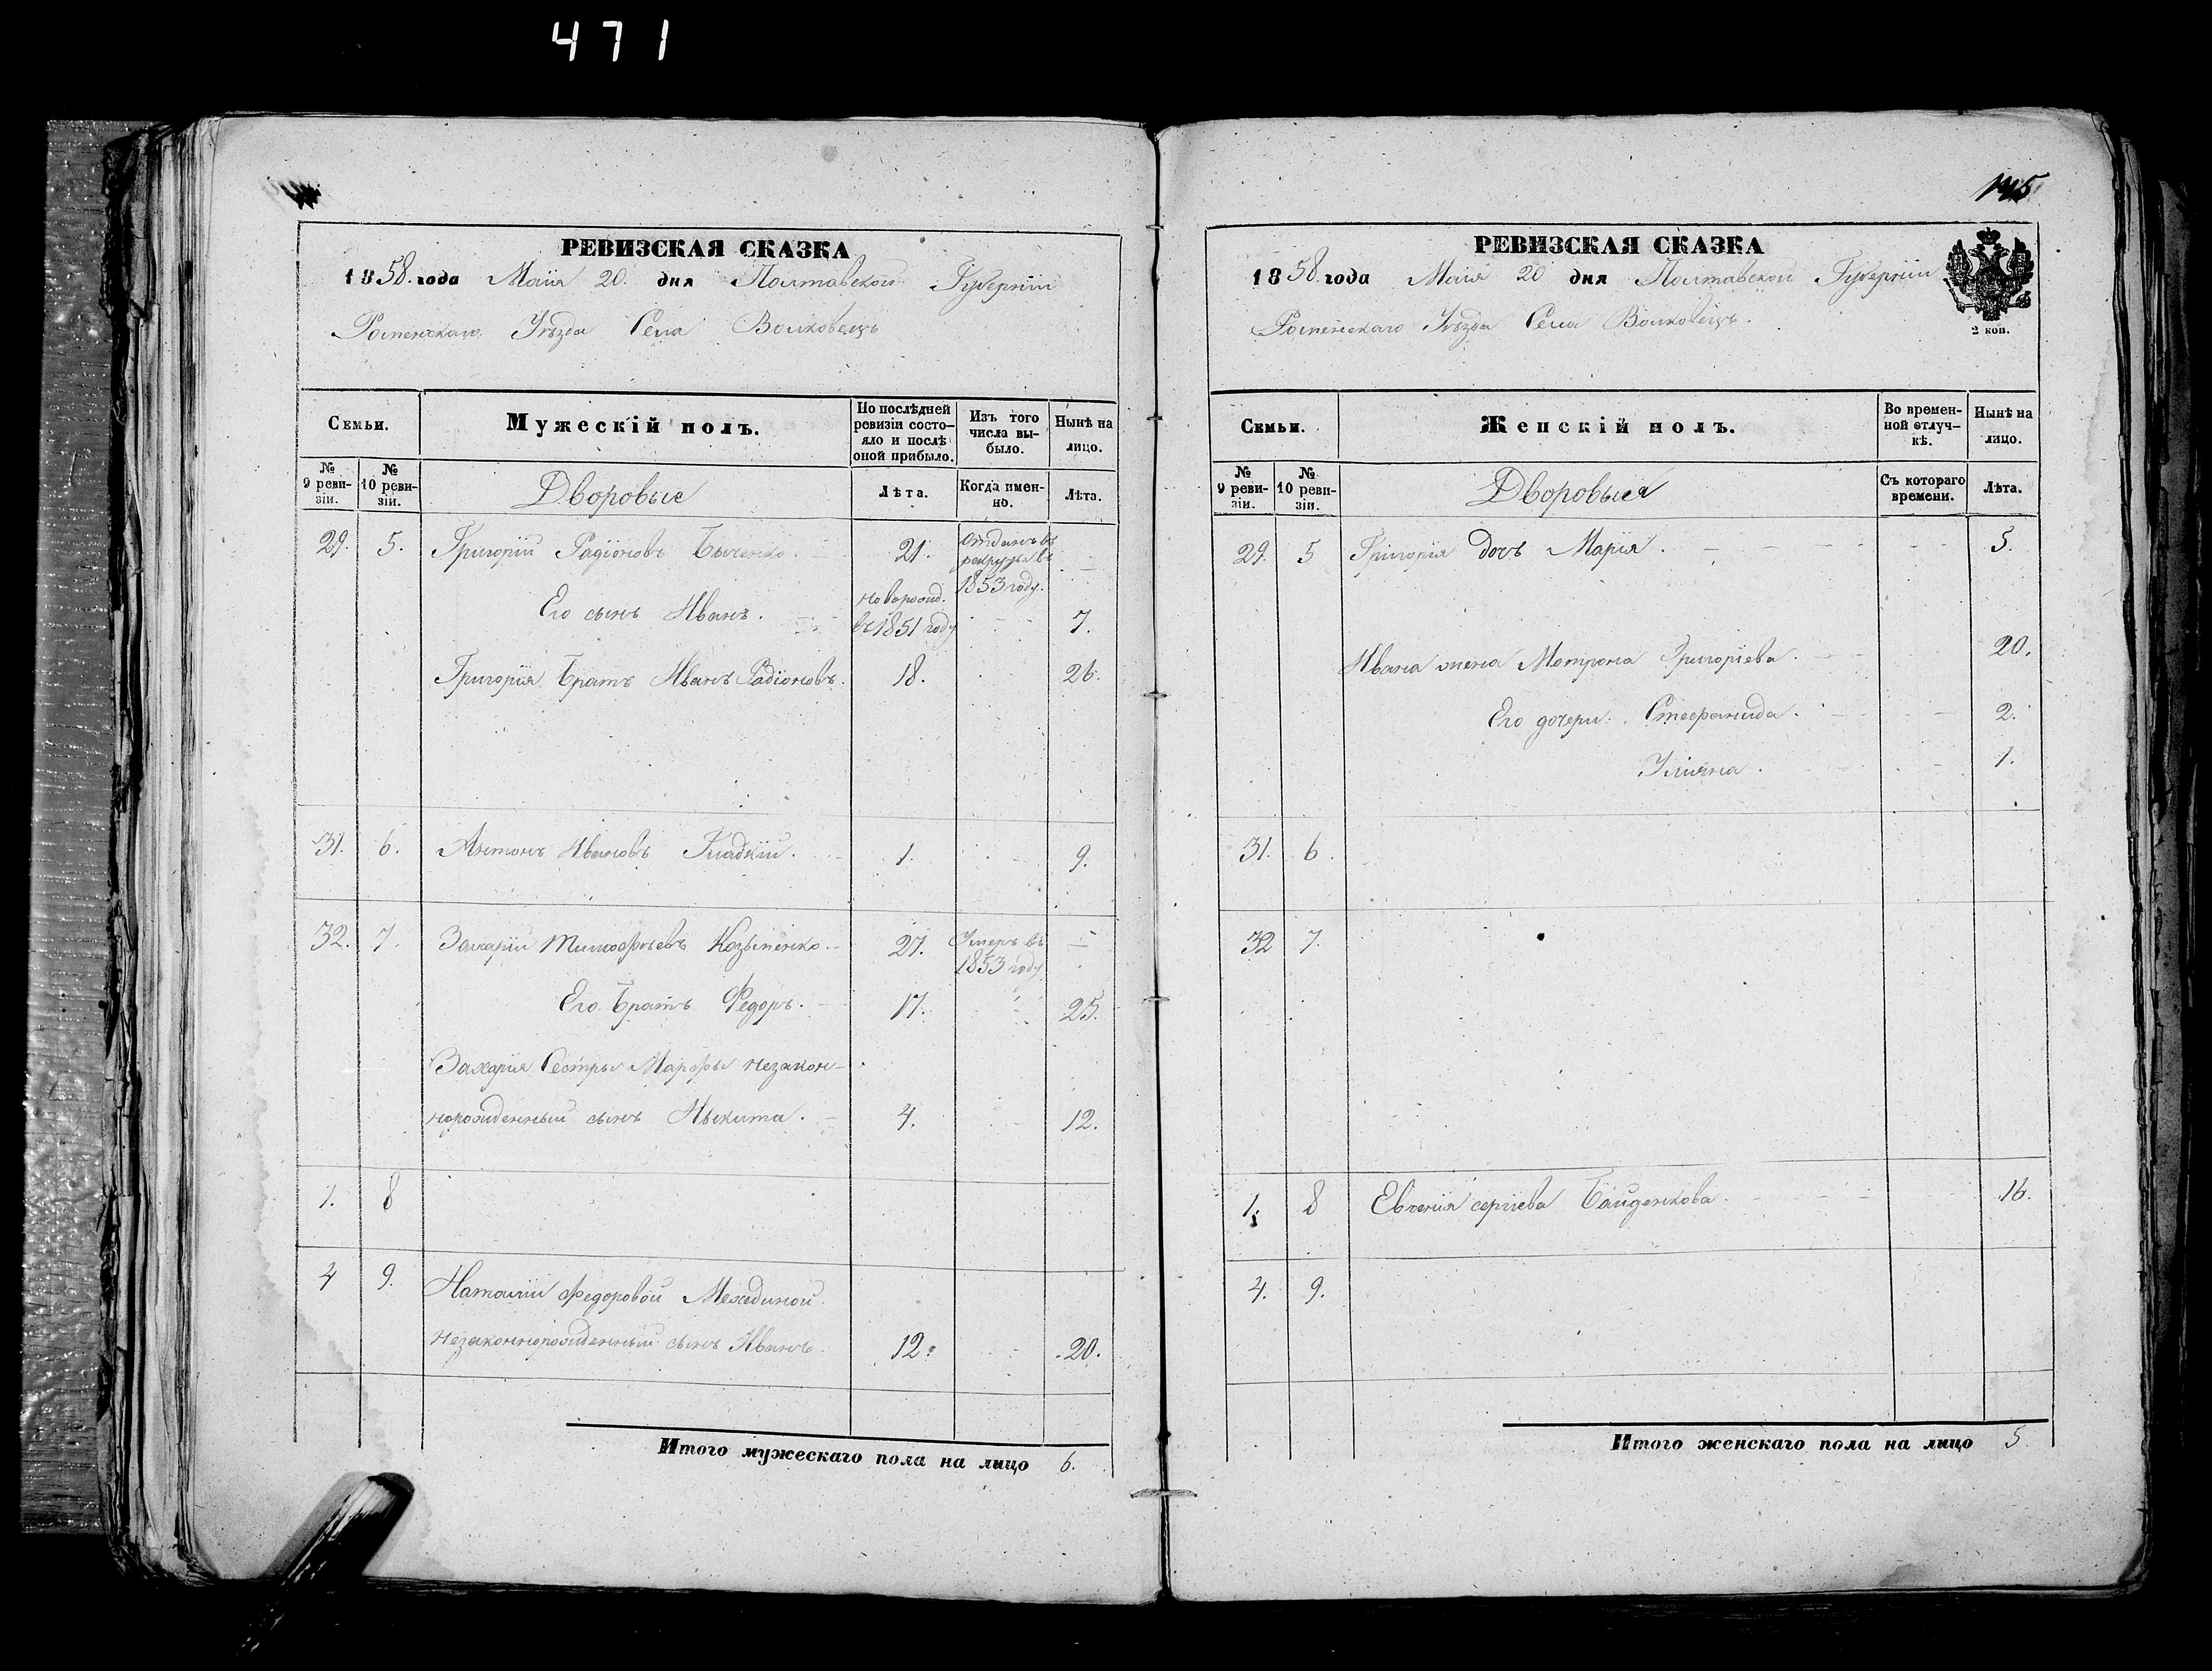 471
РЕВИЗСКАЯ СКАЗКА
1858 года Маія 20 дня Полтавской Губерніи
Роменскаго Уѣзда Села Волковець
Семьи.
Мужескій полъ.
По послѣдней ревизіи состо-
яло и послѣ оной прибыло.
Изъ того числа вы-
было.
Нынѣ на лицо.
№ 9 реви-
зіи.
№ 10 реви-
зіи.
Дворовые
Лѣта.
Когда имен-
но.
Лѣта.
29. 5. Григорій Радіоновъ Быченко. 21. Отданъ въ рекруты въ 1853 году. —
Его сынъ Иванъ. новорожд. въ 1851 году 7.
Григорія Братъ Иванъ Радіоновъ. 18. 26.
31. 6. Антонъ Ивановъ Гладкій. 1. 9.
32. 7. Захарій Тимофѣевъ 27. Умеръ въ 1853 году —
Его Братъ Федоръ. 17. 25.
Захарія Сестры Марфы незакон-
норожденный сынъ Никита. 4. 12.
1. 8
4 9. Наталіи Федоровой
незаконнорожденный сынъ Иванъ. 12. 20.
Итого мужескаго пола на лицо 6.
145
РЕВИЗСКАЯ СКАЗКА
1858 года Маія 20 дня Полтавской Губерніи
Роменскаго Уѣзда Села Волковець.
2 коп.
Семьи.
Женскій полъ.
Во времен-
ной отлуч-
кѣ.
Нынѣ на лицо.
№ 9 реви-
зіи.
№ 10 реви-
зіи.
Дворовыя
Съ котораго времени.
Лѣта.
29. 5 Григорія дочь Марія. 5.
Ивана жена Мотрона Григоріева. 20.
Его дочери. Стефанида. 2.
Уліяна. 1.
31. 6.
32 7.
1. 8 Евгенія Сергіева Байденкова. 16.
4. 9.
Итого женскаго пола на лицо 5.